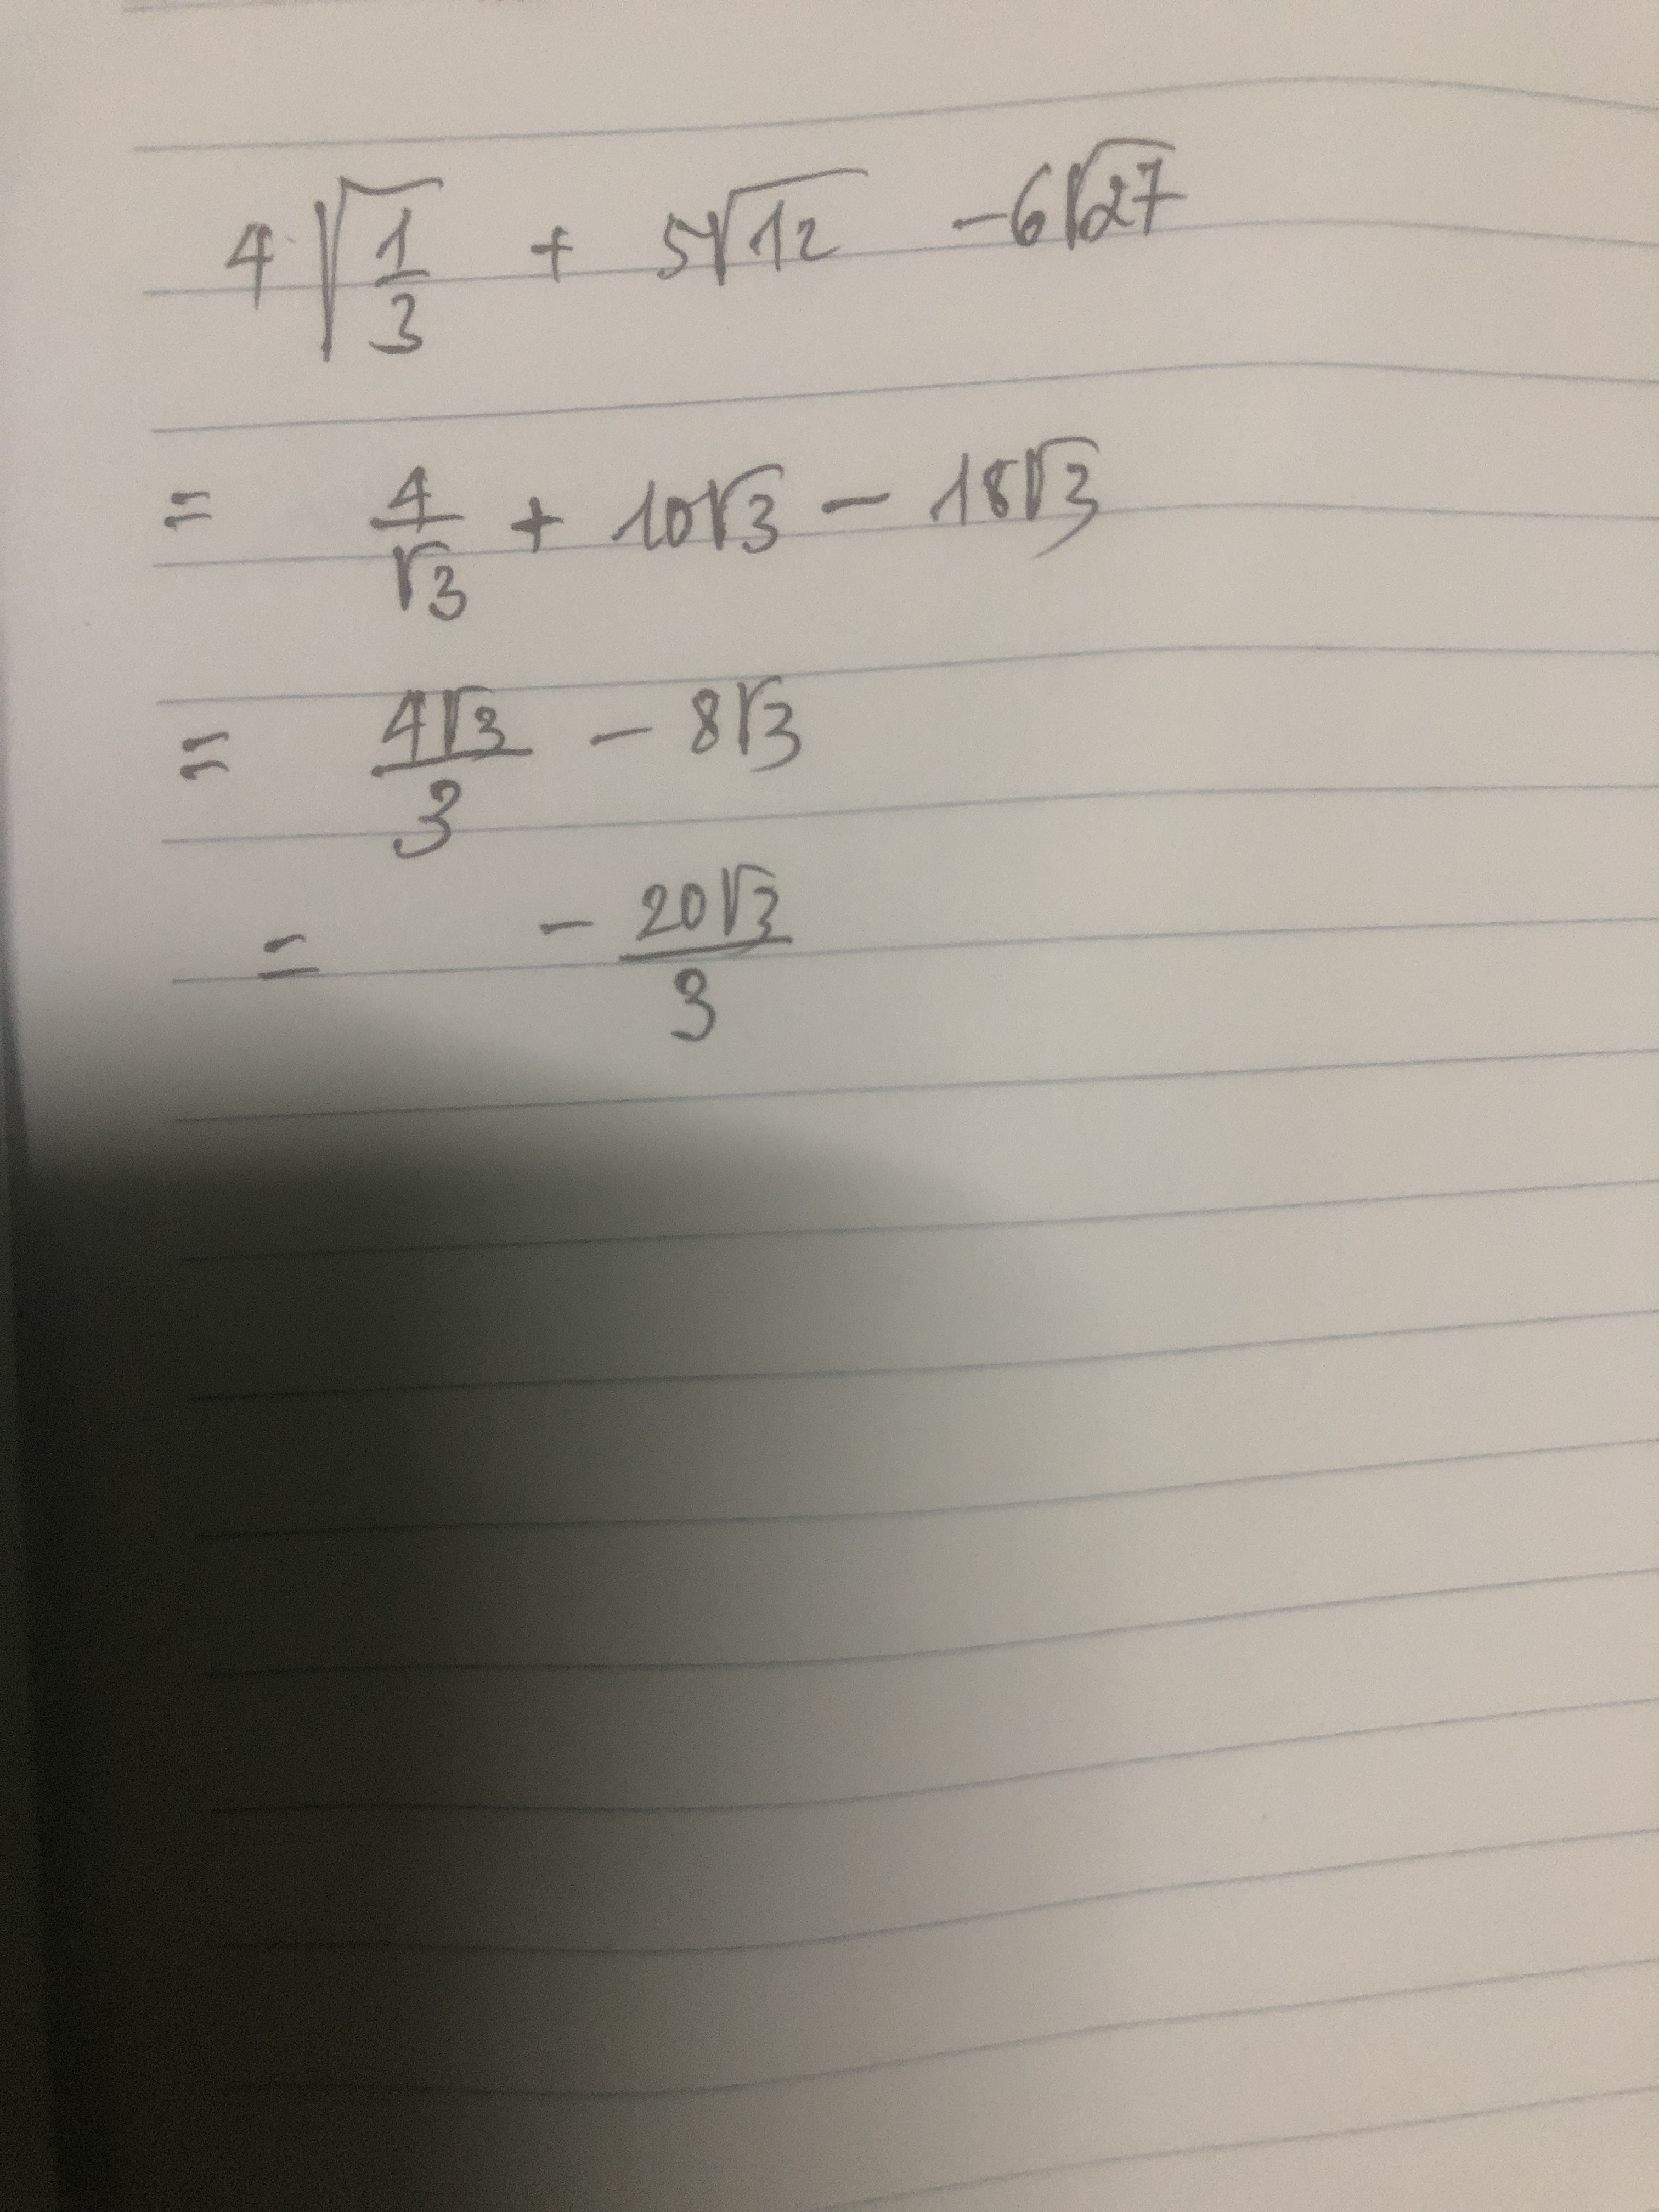 4√(1/3) + 5√12 - 6√27
= 4/√3 + 10√3 - 18√3
= 4√3/3 - 8√3
= - 20√3/3